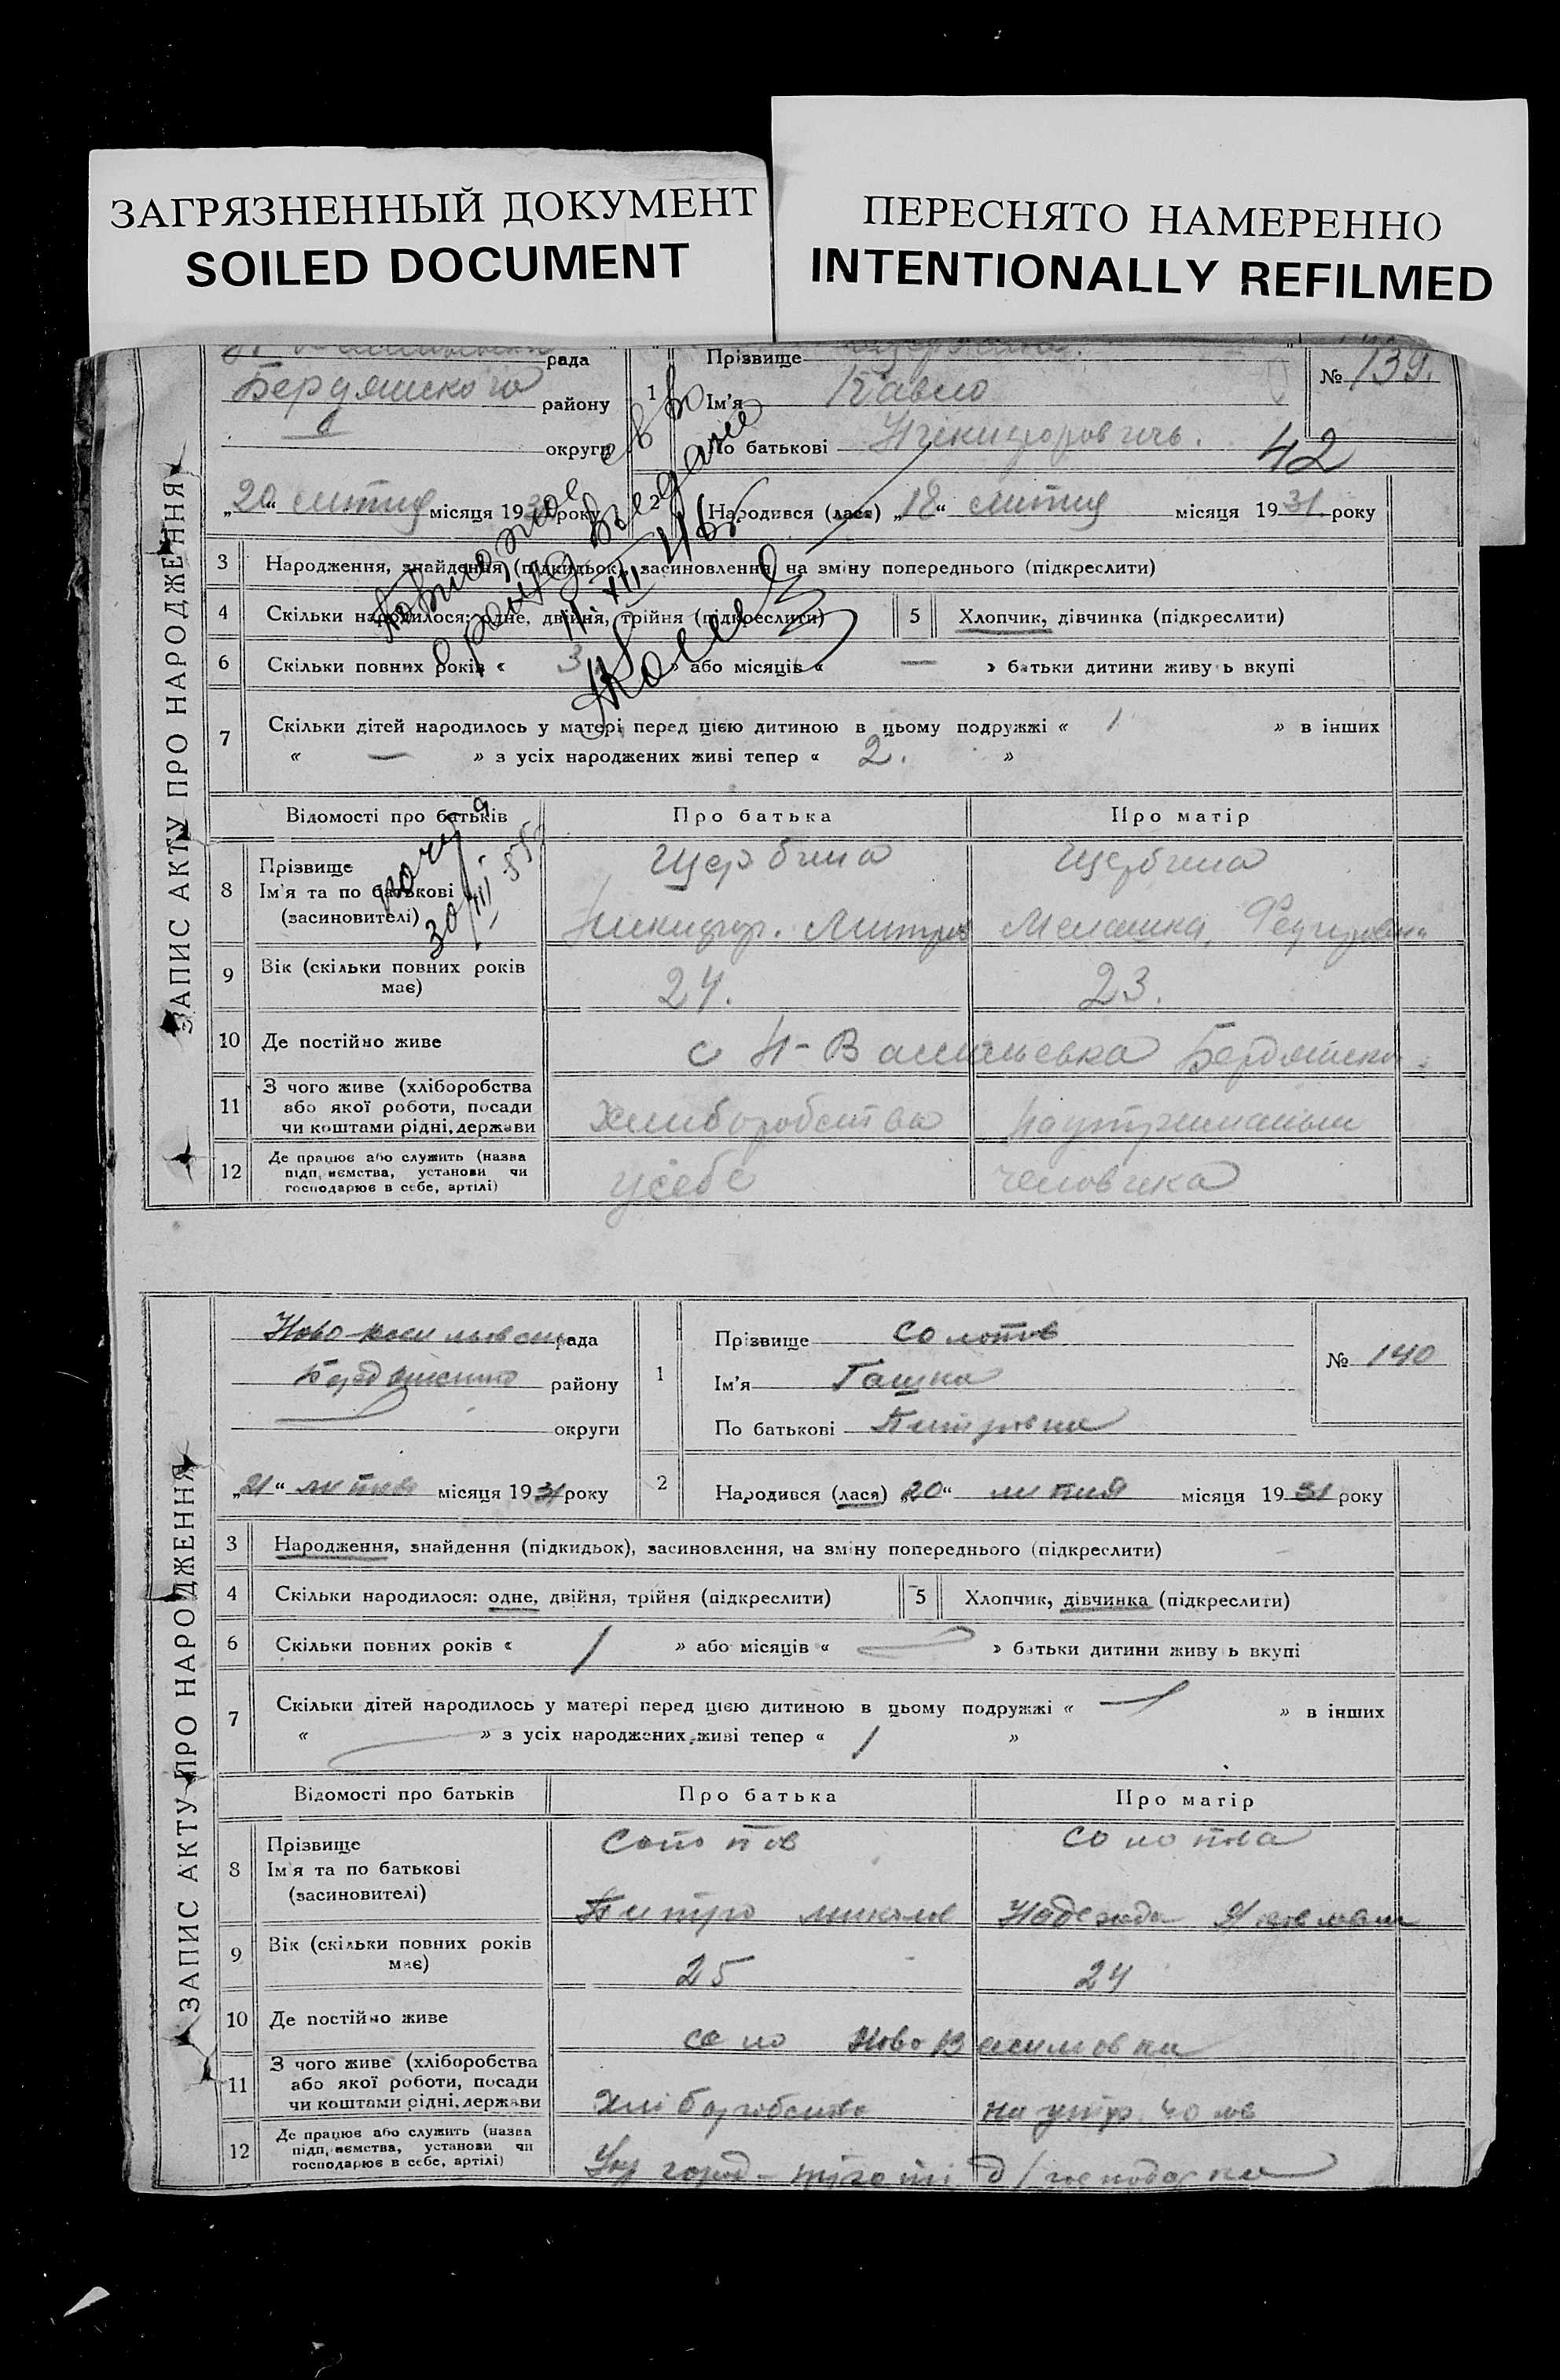 ЗАГРЯЗНЕННЫЙ ДОКУМЕНТ
SOILED DOCUMENT
ПЕРЕСНЯТО НАМЕРЕННО
INTENTIONALLY REFILMED
ЗАПИС АКТУ ПРО НАРОДЖЕННЯ
рада
Бердянського району
округи
1 Прізвище
Ім'я Павло
По батькові Никифорович.
№ 139.
42
„20“ лютня місяця 1931 року
2 Народився (лася) „18“ лютня місяця 1931 року
3 Народження, знайдення (підкидьок), засиновлення, на зміну попереднього (підкреслити)
4 Скільки народилося: одне, двійня, трійня (підкреслити)
5 Хлопчик, дівчинка (підкреслити)
6 Скільки повних років « 3 » або місяців « — » батьки дитини живуть вкупі
7 Скільки дітей народилось у матері перед цією дитиною в цьому подружжі « 1 » в інших
« — » з усіх народжених живі тепер « 2. »
Відомості про батьків
Про батька
Про матір
8 Прізвище
Ім'я та по батькові
(засиновителі)
Щербина
Никифор.
Щербина
Мелашка
30/III-55
9 Вік (скільки повних років
має)
24.
23.
10 Де постійно живе
с Н-Васильевка
11 З чого живе (хліборобства
або якої роботи, посади
чи коштами рідні, держави
Хлиборобства
на утриманьи
12 Де працює або служить (назва
підприємства, установи чи
господарює в себе, артілі)
усебе
человика
ЗАПИС АКТУ ПРО НАРОДЖЕННЯ
рада
району
округи
1 Прізвище Солотов
Ім'я Гашка
По батькові Питровна
№ 140
„21“ лютня місяця 1931 року
2 Народився (лася) „20“ лютня місяця 1931 року
3 Народження, знайдення (підкидьок), засиновлення, на зміну попереднього (підкреслити)
4 Скільки народилося: одне, двійня, трійня (підкреслити)
5 Хлопчик, дівчинка (підкреслити)
6 Скільки повних років « 1 » або місяців « — » батьки дитини живуть вкупі
7 Скільки дітей народилось у матері перед цією дитиною в цьому подружжі « — » в інших
« — » з усіх народжених живі тепер « 1 »
Відомості про батьків
Про батька
Про матір
8 Прізвище
Ім'я та по батькові
(засиновителі)
Солотов
Питро
Солотова
Надежда
9 Вік (скільки повних років
має)
25
24
10 Де постійно живе
село Ново Василовка
11 З чого живе (хліборобства
або якої роботи, посади
чи коштами рідні, держави
Хліборобство
на утр. чолов
12 Де працює або служить (назва
підприємства, установи чи
господарює в себе, артілі)
д/господарка